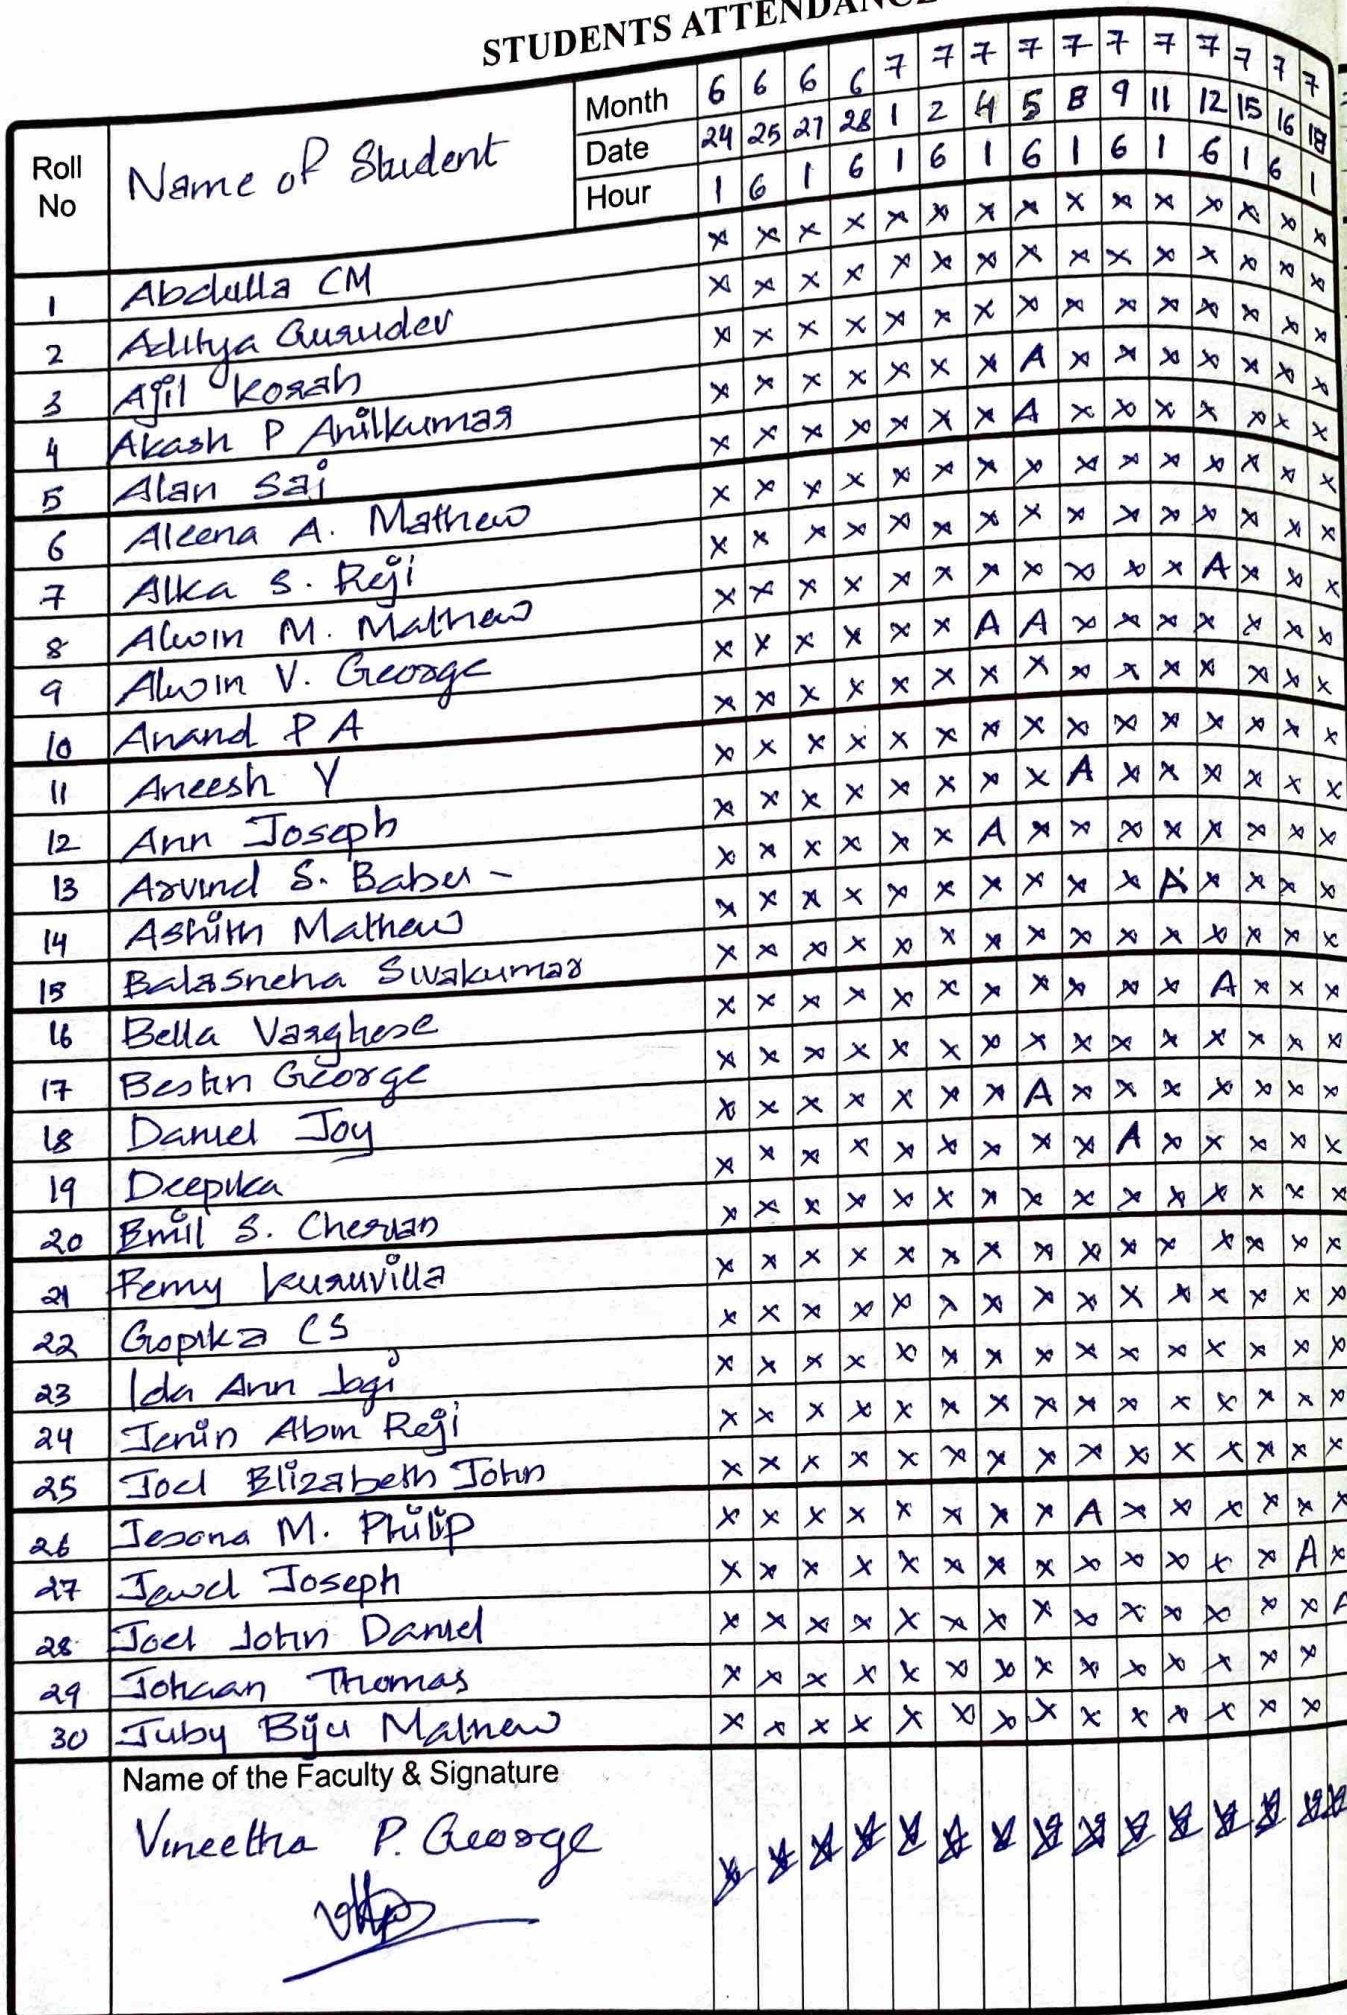 STUDENTS ATTENDANCE
Roll No Name of Student
Month 6 6 6 6 7 7 7 7 7 7 7 7 7 7 7
Date 24 25 27 28 1 2 4 5 8 9 11 12 15 16 18
Hour 1 6 1 6 1 6 1 6 1 6 1 6 1 6 1
1 Abdulla CM x x x x x x x x x x x x x x x
2 Aditya Gurudev x x x x x x x x x x x x x x x
3 Ajil Korah x x x x x x x x x x x x x x x
4 Akash P Anilkumar x x x x x x x A x x x x x x x
5 Alan Saj x x x x x x x A x x x x x x x
6 Aleena A. Mathew x x x x x x x x x x x x x x x
7 Alka S. Reji x x x x x x x x x x x x x x x
8 Alwin M. Mathew x x x x x x x x x x x A x x x
9 Alwin V. George x x x x x x A A x x x x x x x
10 Anand P A x x x x x x x x x x x x x x x
11 Aneesh Y x x x x x x x x x x x x x x x
12 Ann Joseph x x x x x x x x A x x x x x x
13 Arvind S. Babu - x x x x x x A x x x x x x x x
14 Ashith Mathew x x x x x x x x x x A x x x x
15 Balasneha Sivakumar x x x x x x x x x x x x x x x
16 Bella Varghese x x x x x x x x x x x A x x x
17 Bestin George x x x x x x x x x x x x x x x
18 Daniel Joy x x x x x x x A x x x x x x x
19 Deepika x x x x x x x x x A x x x x x
20 Emil S. Cherian x x x x x x x x x x x x x x x
21 Femy Kuruvilla x x x x x x x x x x x x x x x
22 Gopika CS x x x x x x x x x x x x x x x
23 Ida Ann Jogi x x x x x x x x x x x x x x x
24 Jerin Abin Reji x x x x x x x x x x x x x x x
25 Joel Elizabeth John x x x x x x x x x x x x x x x
26 Jesona M. Philip x x x x x x x x A x x x x x x
27 Jewel Joseph x x x x x x x x x x x x x A x
28 Joel John Daniel x x x x x x x x x x x x x x A
29 Johaan Thomas x x x x x x x x x x x x x x
30 Juby Biju Mathew x x x x x x x x x x x x x x
Name of the Faculty & Signature
Vineetha P. George